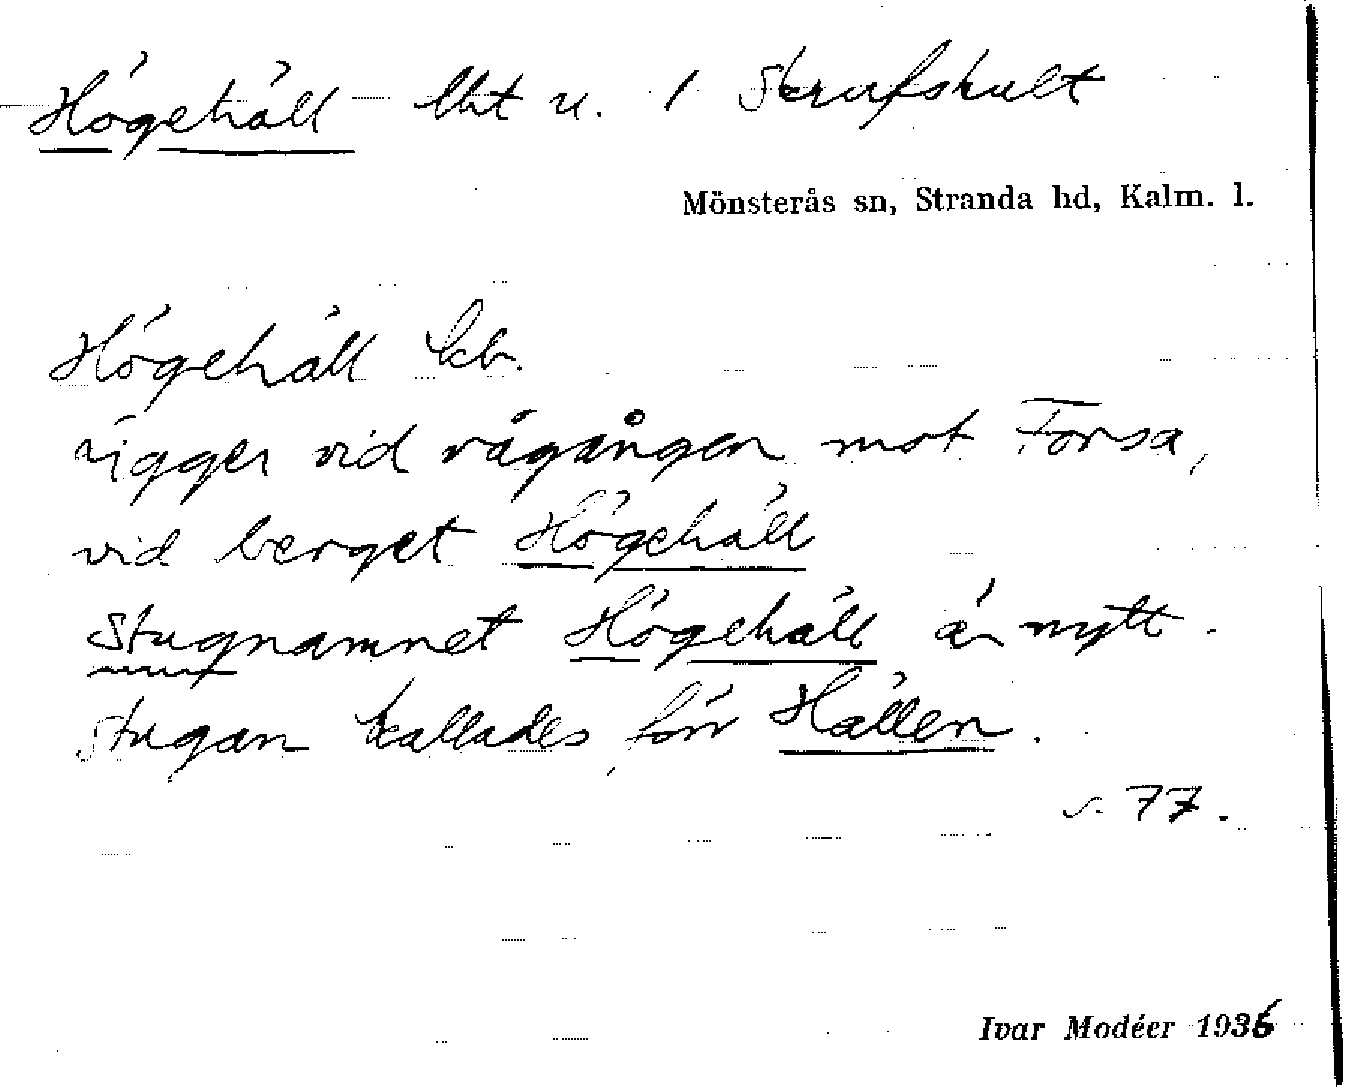 Högehäll lht u. 1 Skrufshult
Mönsterås sn, Stranda hd, Kalm. l.
Högehäll kb.
ligger vid rågången mot Forsa,
vid berget Högehäll
Stugnamnet Högehäll är nytt.
Stugan kallades förr Hällen.
s. 77.
Ivar Modéer 1936